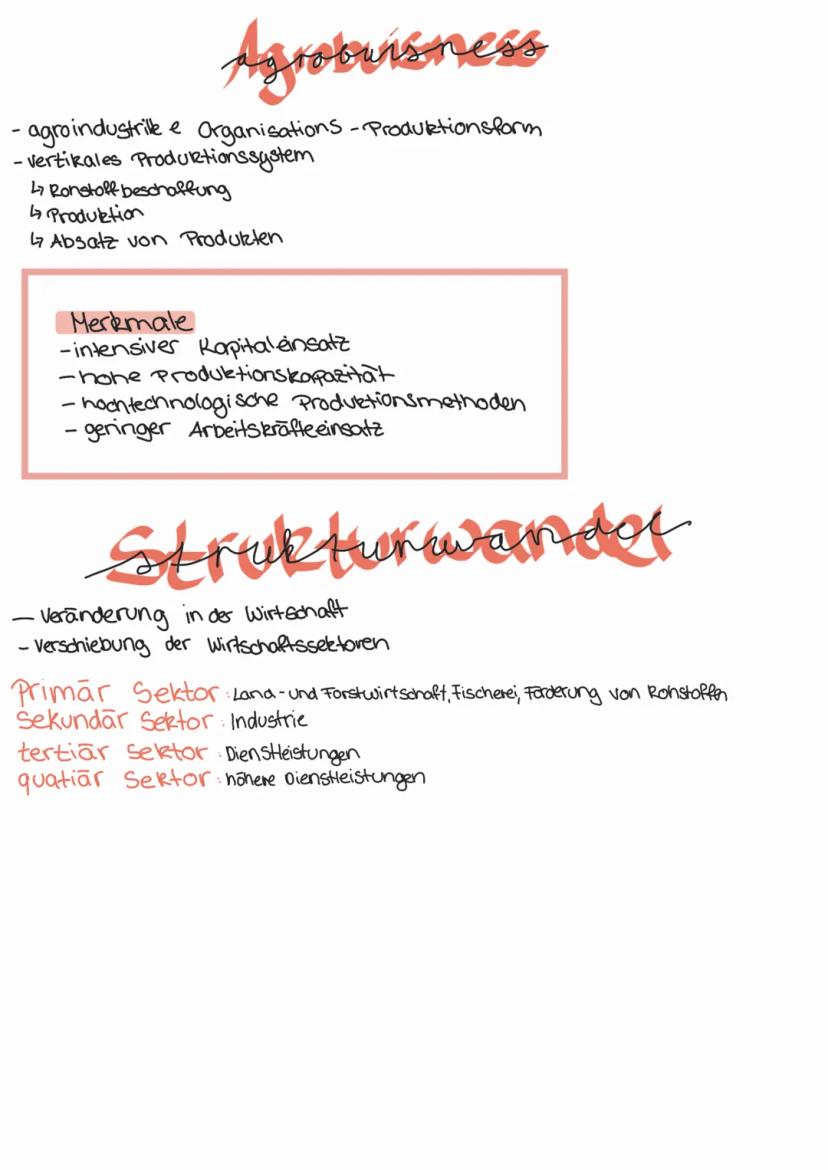 Agrobuisness
- agroindustrille e Organisations - Produktionsform
- vertikales Produktionssystem
↳ Rohstoffbeschaffung
↳ Produktion
↳ Absatz von Produkten
Merkmale
- intensiver Kapitaleinsatz
- hohe Produktionskapazität
- hochtechnologische Produktionsmethoden
- geringer Arbeitskräfteeinsatz
Strukturwandel
- Veränderung in der Wirtschaft
- Verschiebung der Wirtschaftssektoren
Primär Sektor: Land- und Forstwirtschaft, Fischerei, Förderung von Rohstoffen
Sekundär Sektor: Industrie
tertiär Sektor: Dienstleistungen
quatiär Sektor: höhere Dienstleistungen